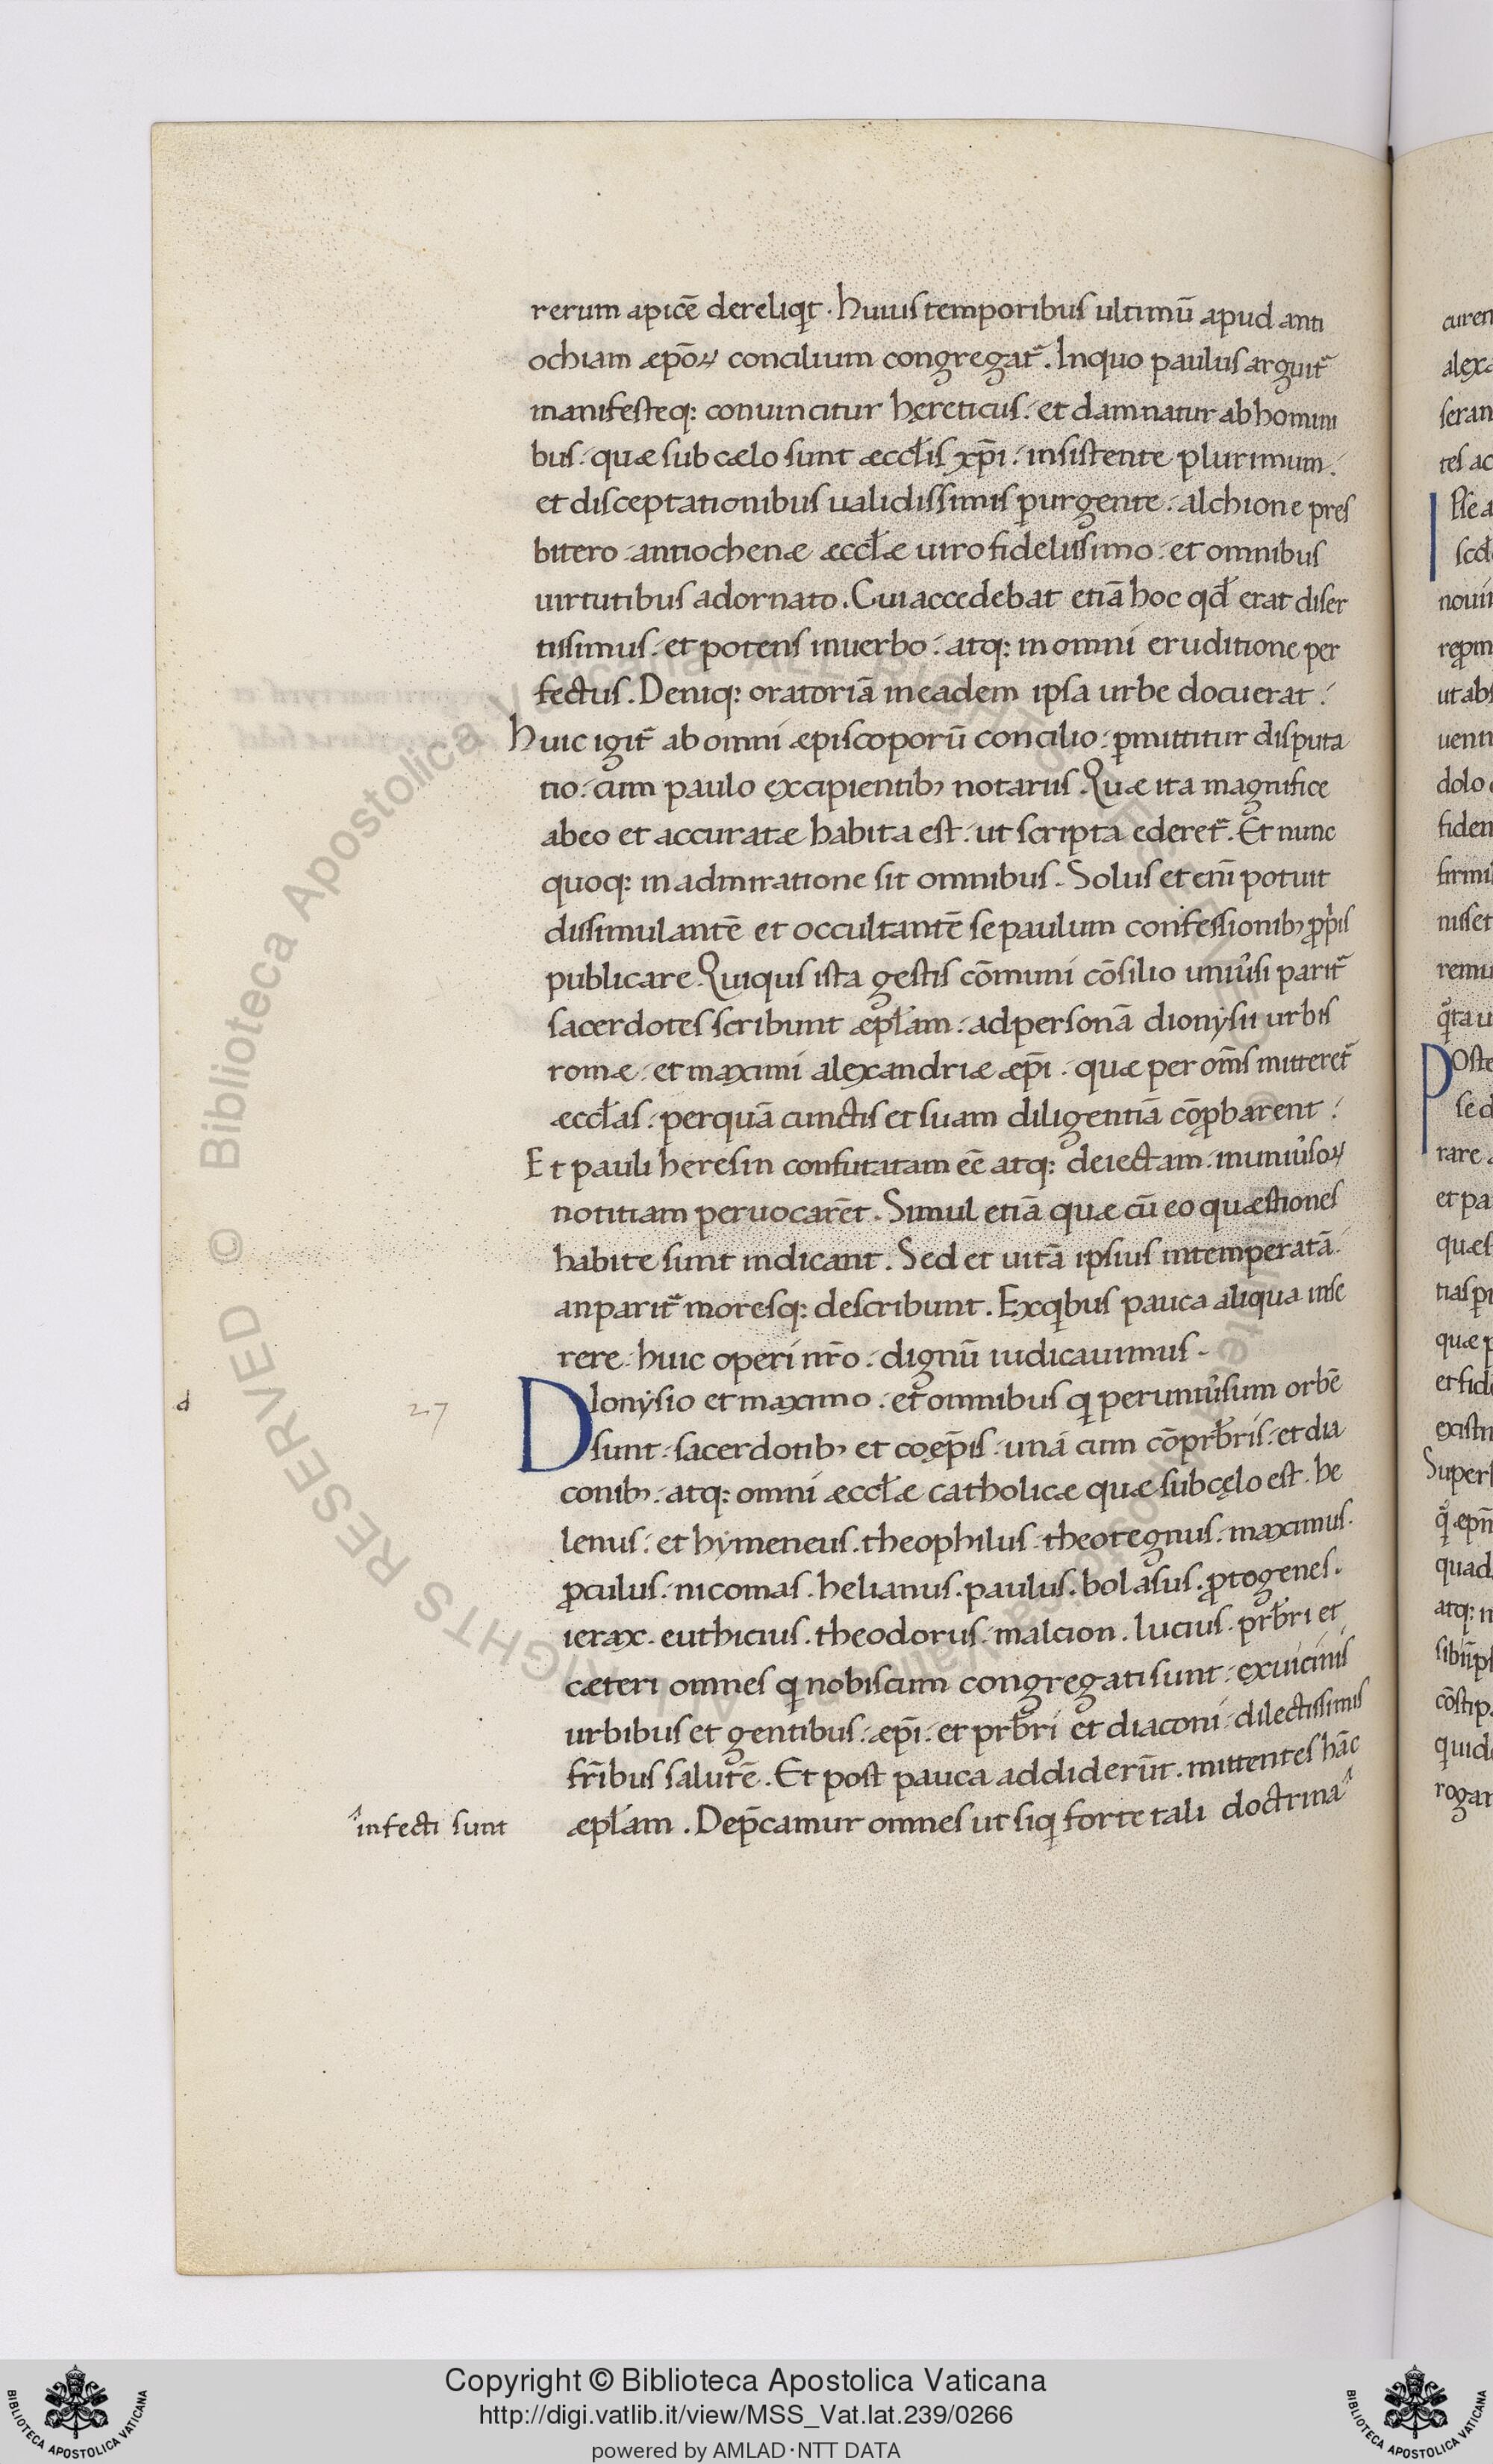 rerum apicē dereliqt. huius temporibus ultimū apud anti
ochiam æpōꝝ concilium congregat᷑. Inquo paulus arguit᷑
manifesteq: conuincitur hęreticus. et damnatur ab homini
bus. quæ sub cælo sunt æccłis xp̄i. insistente plurimum.
et disceptationibus ualidissimis purgente. alchione pres
bitero antiochenæ æccłæ uiro fidelissimo. et omnibus
uirtutibus adornato. Cui accedebat etiā hoc qd̄ erat diser
tissimus. et potens inuerbo. atq: in omni eruditione per
fectus. Deniq: oratoriā ineadem ipsa urbe docuerat.
huic igit᷑ ab omni æpiscoporū concilio. ꝑmittitur disputa
tio. cum paulo excipientibꝫ notariis. Quæ ita magnifice
abeo et accuratæ habita est. ut scripta ederet᷑. Et nunc
quoq: in admiratione sit omnibus. Solus et eni᷑ potuit
dissimulantē et occultantē se paulum confessionibꝫ ꝓpriis
publicare. Quiqus ista gestis cōmuni cōsilio uniu᷑si parit᷑
sacerdotes scribunt æpłam. ad personā dionysii urbis
romæ. et maximi alexandriæ æp̄i. quæ per om̄s mitteret᷑
æccłas. per quā cunctis et suam diligentiā cōꝓbarent.
Et pauli heresin confutatam eē atq: deiectam. in uniu᷑soꝝ
notitiam peruocarēt. Simul etiā quæ cū eo quæstiones
habite sunt indicant. Sed et uitā ipsius intemperatā.
anparit᷑ moresq: describunt. Exqibus pauca aliqua inse
rere huic operi nr̄o. dignū iudicauimus.
27
d
Dionysio et maximo. et omnibus qi per uniu᷑sum orbē
sunt sacerdotibꝫ et coep̄is. unā cum cōprb̄ris. et dia
conibꝫ. atq: omni æccłæ catholicæ quæ sub cęlo est. he
lenus. et hymeneus. theophilus. theotegnus. maximus.
ꝓculus. nicomas. helianus. paulus. bolasus. ꝓtogenes.
ierax. euthicius. theodorus. malcion. lucius. prb̄ri et
cæteri omnes qi nobiscum congregati sunt. ex uicinis
urbibus et gentibus. æp̄i. et prb̄ri et diaconi. dilectissimis
fr̄ibus salutē. Et post pauca addiderūt. mittentes hāc
æpłam. Dep̄camur omnes ut siqi forte tali doctrina
infecti sunt
curen
alexa
seran
tes ac
Pse a
scd
nouir
uenn
dolo
fiden
firmi
nisset
remu
POste
se d
rare
et pa
quæs
quæ p
et fid
existn
Super
quad
quid
rogar
Copyright © Biblioteca Apostolica Vaticana
http://digi.vatlib.it/view/MSS_Vat.lat.239/0266
powered by AMLAD·NTT DATA
BIBLIOTECA APOSTOLICA VATICANA
BIBLIOTECA APOSTOLICA VATICANA